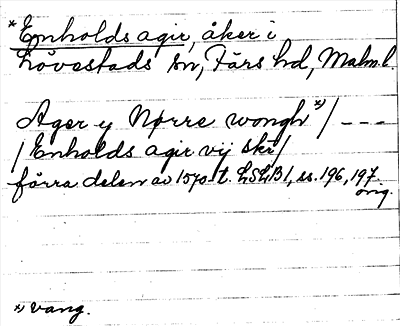 *Enholds agir, åker i
Lövestads sn, Färs hd, Malm.l.
Ager y Nørre wongh *)/ ---
/ Enholds agir vij skr /
förra delen av 1570-t. LSLB1, ss. 196, 197
orig.
*) vang.